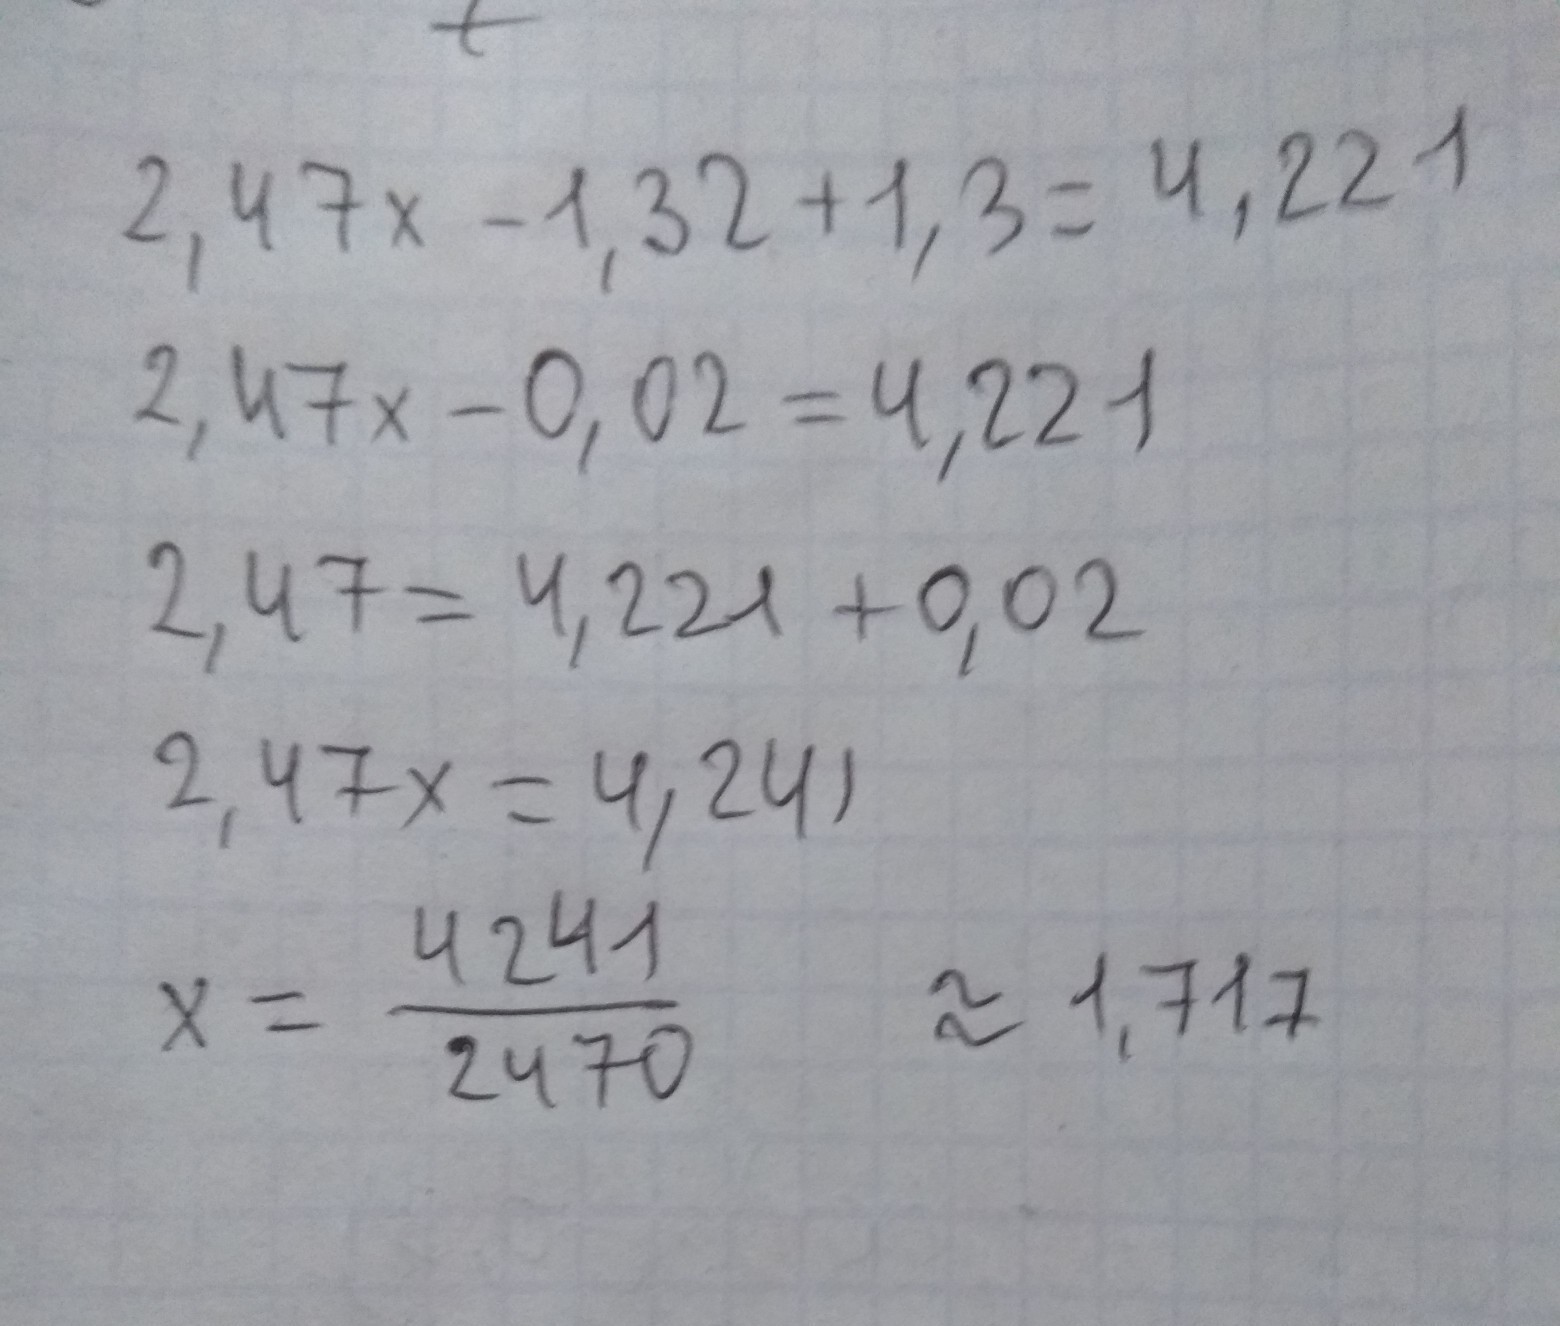 2,47x - 1,32 + 1,3 = 4,221
2,47x - 0,02 = 4,221
2,47 = 4,221 + 0,02
2,47x = 4,241
x = 4241/2470 ≈ 1,717